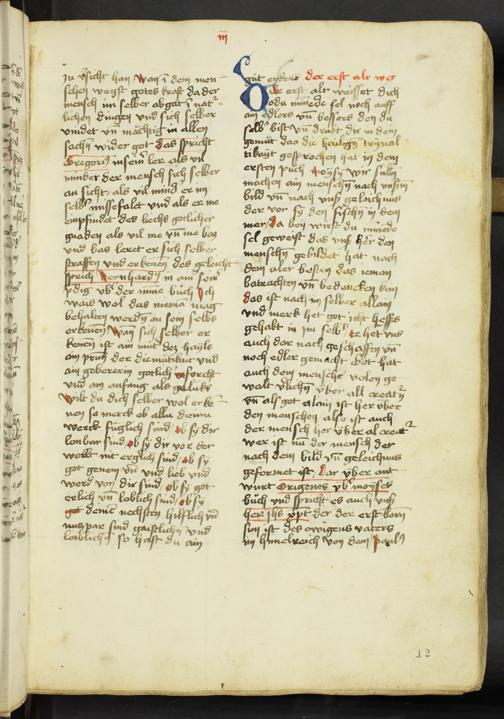 iij
zu v̈sicht han Wan ī dem men
schen wegst gotes kraft da der
mensch im selber abgat ī nat
lichen dingen und sich selber
vindet vn̄ mächtig in allen
sachn̄ wider got das spricht
Gregorius in sein ler als vil
minder der mensch sich selber
an sicht als vil mind er im
selbs missefalt und als er me
empfindet des liechs götlicher
gnaden als vil me vn̄ me baz
und das leret er sich selber
straffen und erkenen des geleicht
sprich Bernhardꝰ in ain sein
ydig vb' der mine büch Ich
wais wol das meniā mag
behalten werdn̄ on sein selbs
erkenen Wan sich selber er
kenen ist ain mūt dez hayls
ain prūn der diemütikait und
ain gebererin gotlich vforcht
und ain anfang als gelüks
Wilt du dich selber wol erke
nen so merck ob alliu deiniu
werck fuglich sind ob sy dir
lonbar sind ob sy dir vor der
welt nit erglich sind ob sy
got genem vn̄ und lieb und
werd von dir sind ob sy got
erlich vn̄ loblich sind ob sy
got deine nechstn̄ hilflich vn̄
nuzpar sind gaistlichn̄ und
loiblich so hast du ain
güt der erst alt we
Der erst alt weiset dich
o du minēde sel noch auff
ain edlers vn̄ bessers den du
selb bist vn̄ druct dir in dein
gemüt das die heiligū trinual
tikayt gesprochen hat in dem
ersten püch moysy wir süln̄
machen ain menschn̄ nach vnsm̄
bild vn̄ nach vnß geleichnuß
der vor sy den fischn̄ in dem
mer da ben wirst du minēde
sel geweist das vnß her den
menschn̄ gebildet hat nach
dem aler besten das ieman
batrachten vn̄ bedencken kan
das ist nach im selber allain
und merk het got icht hessß
gehabt in im selb er het vnß
auch dar nach geschaffen vn̄
noch edler gemacht Got hat
auch dem menschn̄ volen ge
walt v'lichn̄ v̈ber all creatꝰ
vn̄ als got alain ist her v̈ber
den menschen also ist auch
der mensch her v̈ber al creatꝰ
wer ist nū der mensch der
nach dem bild vn̄ geleichnuß
geformet ist, dar v̈ber ant
wurt Origenes vb moyses
büch und spricht es auch vnß
her jhs xp̄c der der erst born
sun ist des ewigens vaters
in himelreich von dem paulꝰ
12